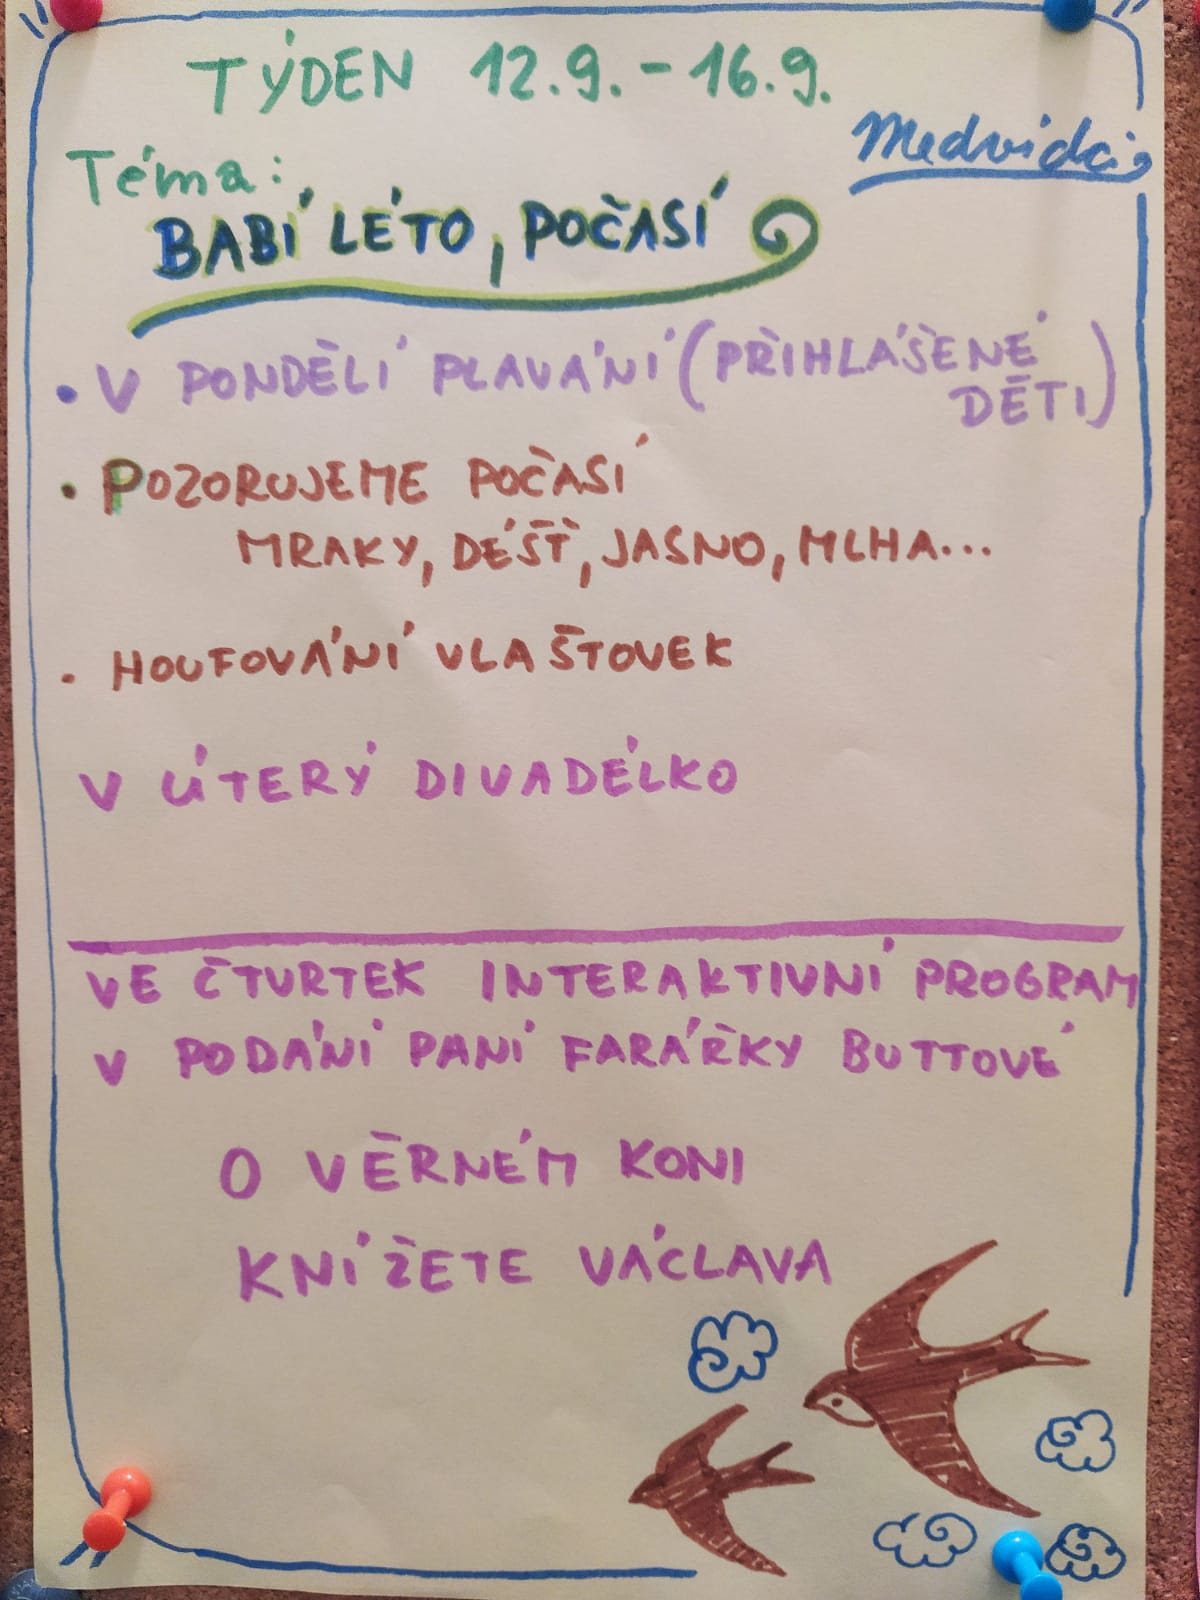 TÝDEN 12.9. - 16.9.
Medvídci
Téma:
BABÍ LÉTO, POČASÍ
• V PONDĚLÍ PLAVÁNÍ (PŘIHLÁŠENÉ
DĚTI)
• POZORUJEME POČASÍ
MRAKY, DÉŠŤ, JASNO, MLHA...
• HOUFOVÁNÍ VLAŠTOVEK
V ÚTERÝ DIVADÉLKO
VE ČTVRTEK INTERAKTIVNÍ PROGRAM
V PODÁNÍ PANÍ FARÁŘKY BUTTOVÉ
O VĚRNÉM KONI
KNÍŽETE VÁCLAVA